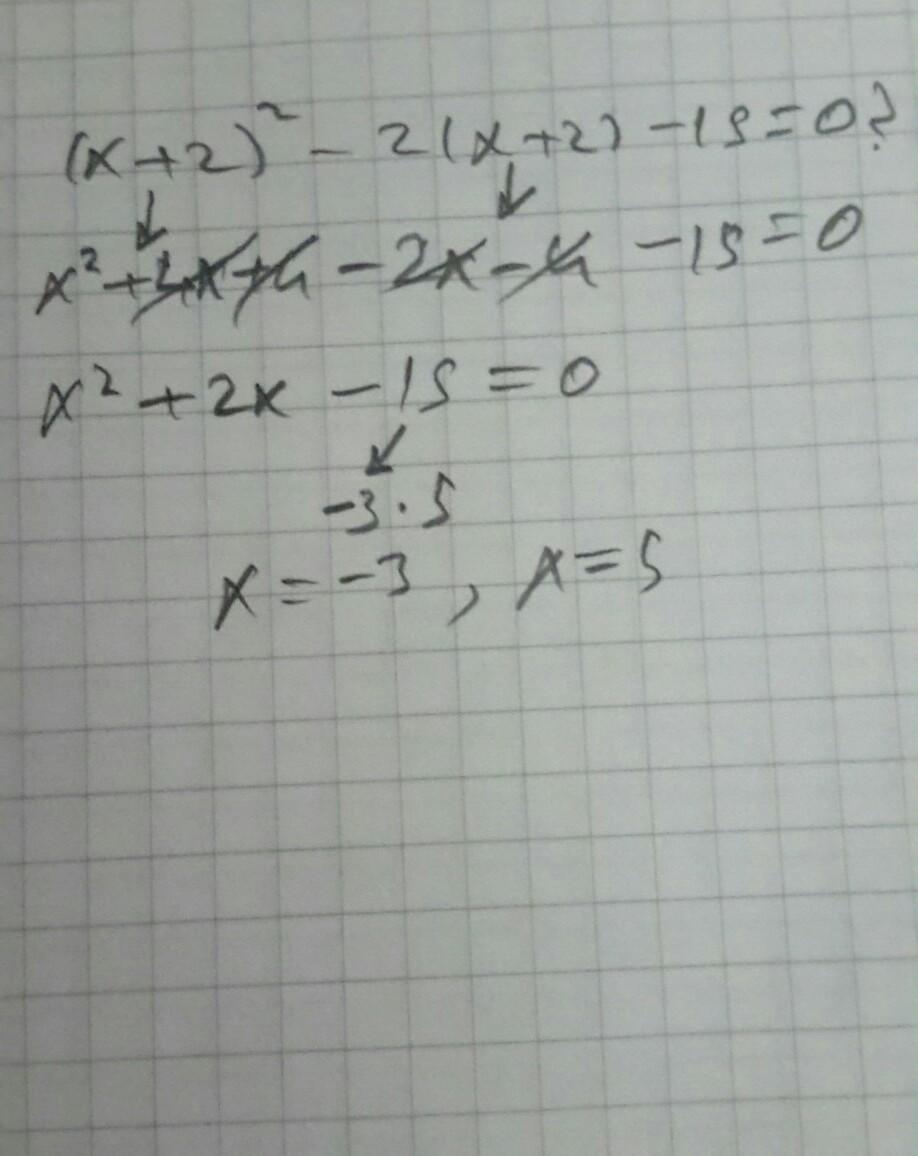 (x+2)² - 2(x+2) -15=0?
x² +4x+4 -2x-4 -15=0
x² +2x -15 =0
-3.5
x=-3, x=5